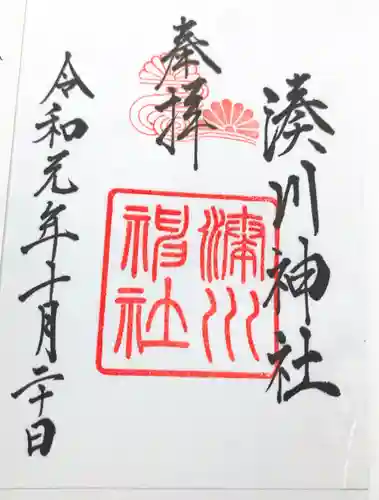 湊川神社
奉拝
湊川神社
令和元年十月二十日